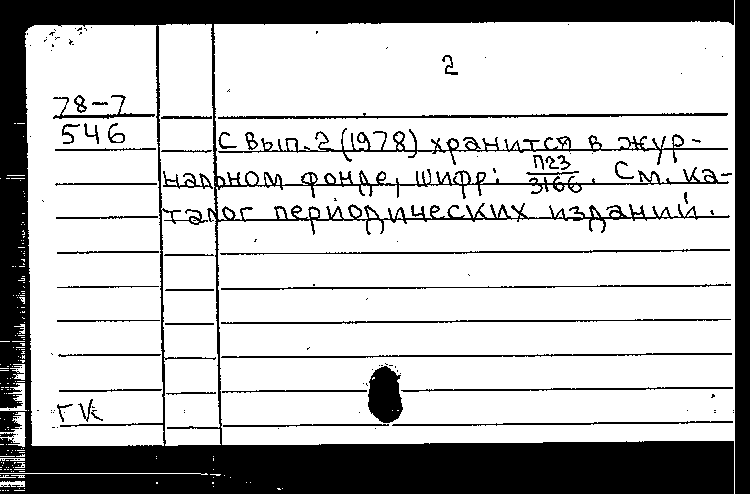 2
78-7
546
С вып. 2 (1978) хранится в жур-
нальном фонде, шифр: П23/3166. См. ка-
талог периодических изданий.
ГК